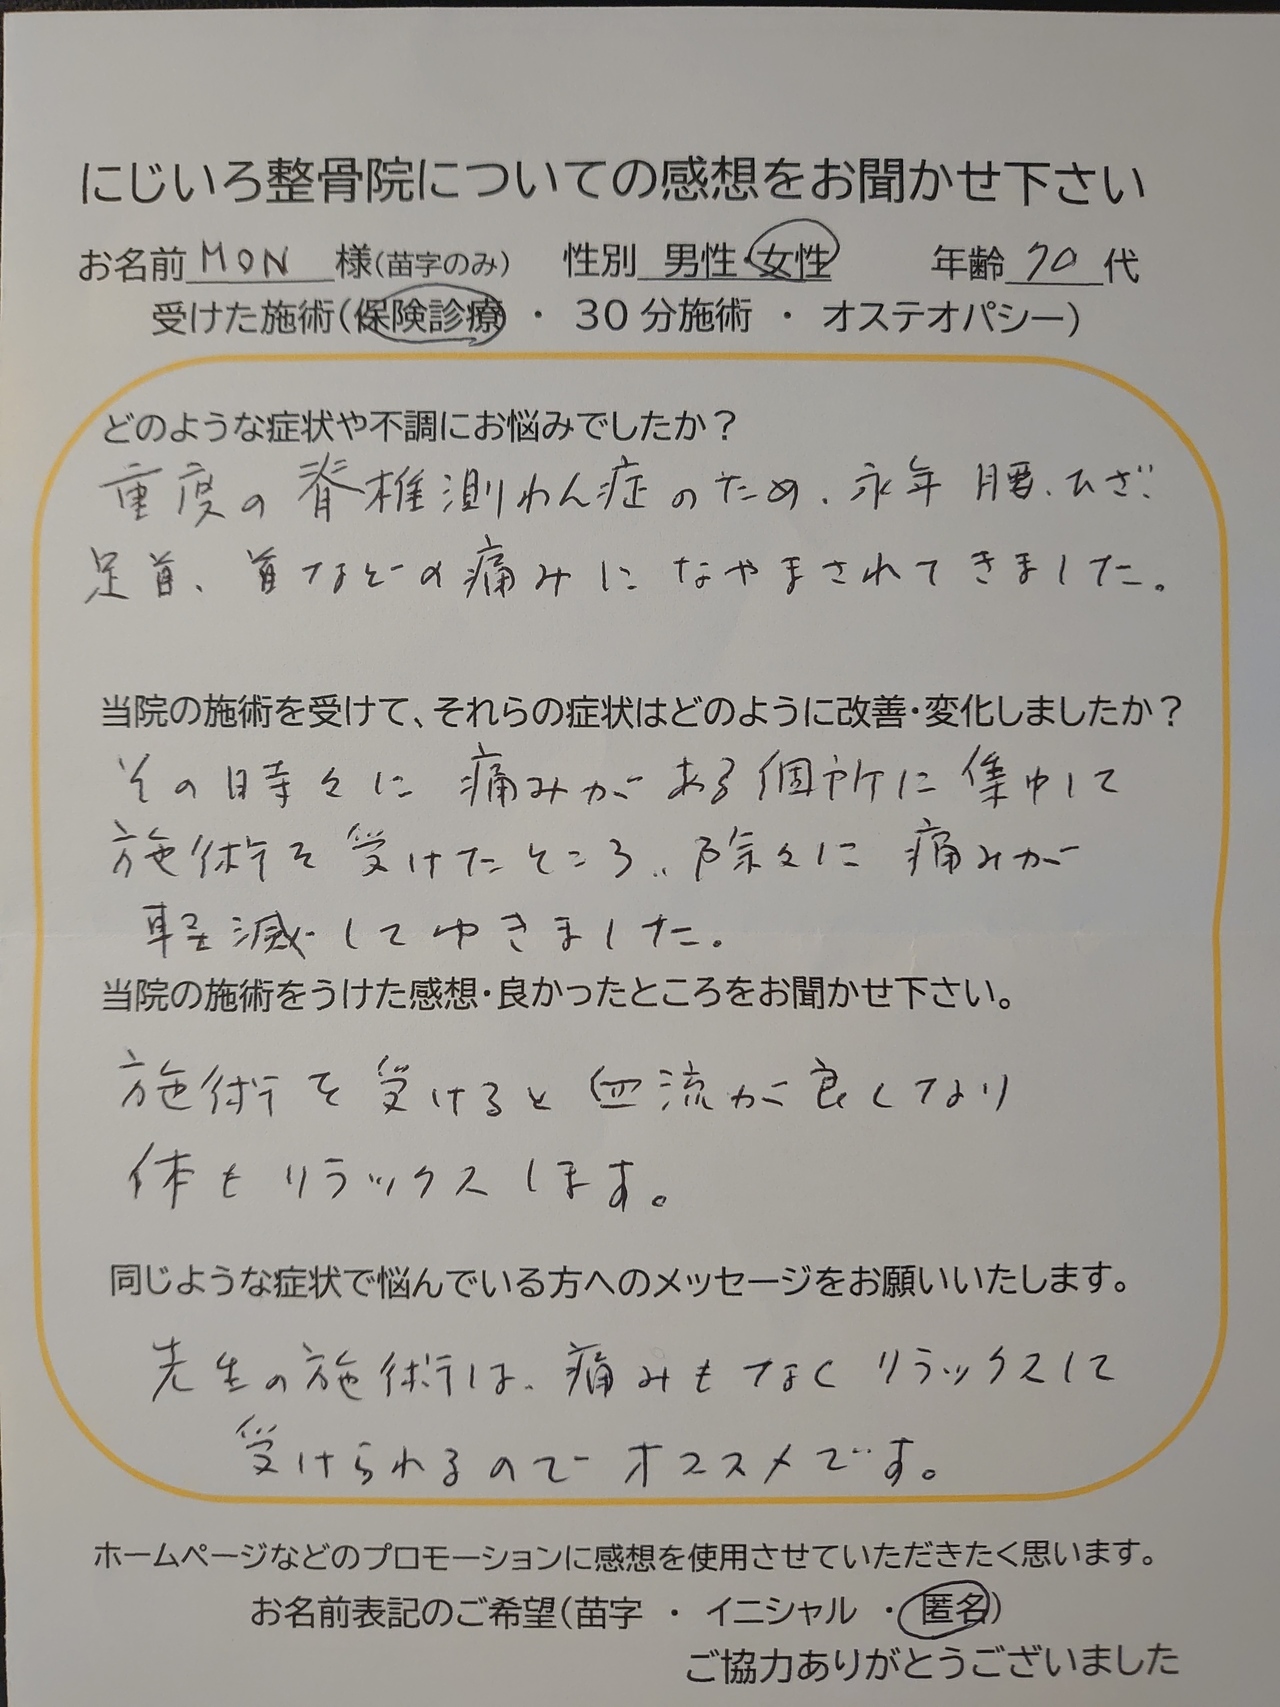 にじいろ整骨院についての感想をお聞かせ下さい
お名前 MON 様(苗字のみ) 性別 男性・女性 年齢 70 代
受けた施術(保険診療 ・ 30分施術 ・ オステオパシー)
どのような症状や不調にお悩みでしたか?
重度の脊椎測わん症のため、永年腰、ひざ、
足首、首などの痛みになやまされてきました。
当院の施術を受けて、それらの症状はどのように改善・変化しましたか?
その時々に痛みがある個所に集中して
施術を受けたところ、除々に痛みが
軽減してゆきました。
当院の施術をうけた感想・良かったところをお聞かせ下さい。
施術を受けると血流が良くなり
体もリラックスします。
同じような症状で悩んでいる方へのメッセージをお願いいたします。
先生の施術は、痛みもなくリラックスして
受けられるのでオススメです。
ホームページなどのプロモーションに感想を使用させていただきたく思います。
お名前表記のご希望(苗字 ・ イニシャル ・ 匿名)
ご協力ありがとうございました